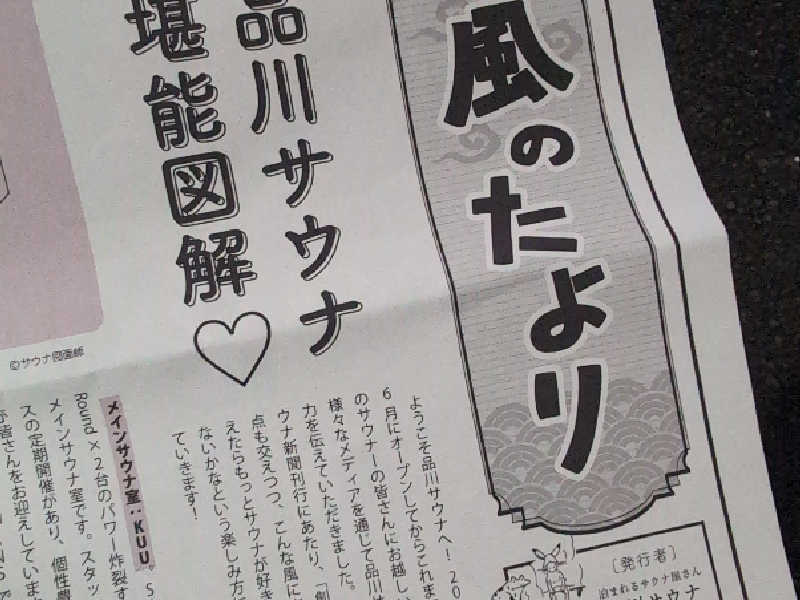 風のたより
品川サウナ
堪能図解♡
ようこそ品川サウナへ！20
6月にオープンしてからこれま
のサウナーの皆さんにお越し
様々なメディアを通じて品川
力を伝えていただきました。
ウナ新聞刊行にあたり、「創
点も交えつつ、こんな風に
えたらもっとサウナが好き
ないかなという楽しみ方
ていきます！
メインサウナ室：KUU
Round×2台のパワー炸裂す
メインサウナ室です。スタッ
スの定期開催があり、個性豊
皆さんをお迎えしていま
〔発行者〕
泊まれるサウナ屋さん
サウナ